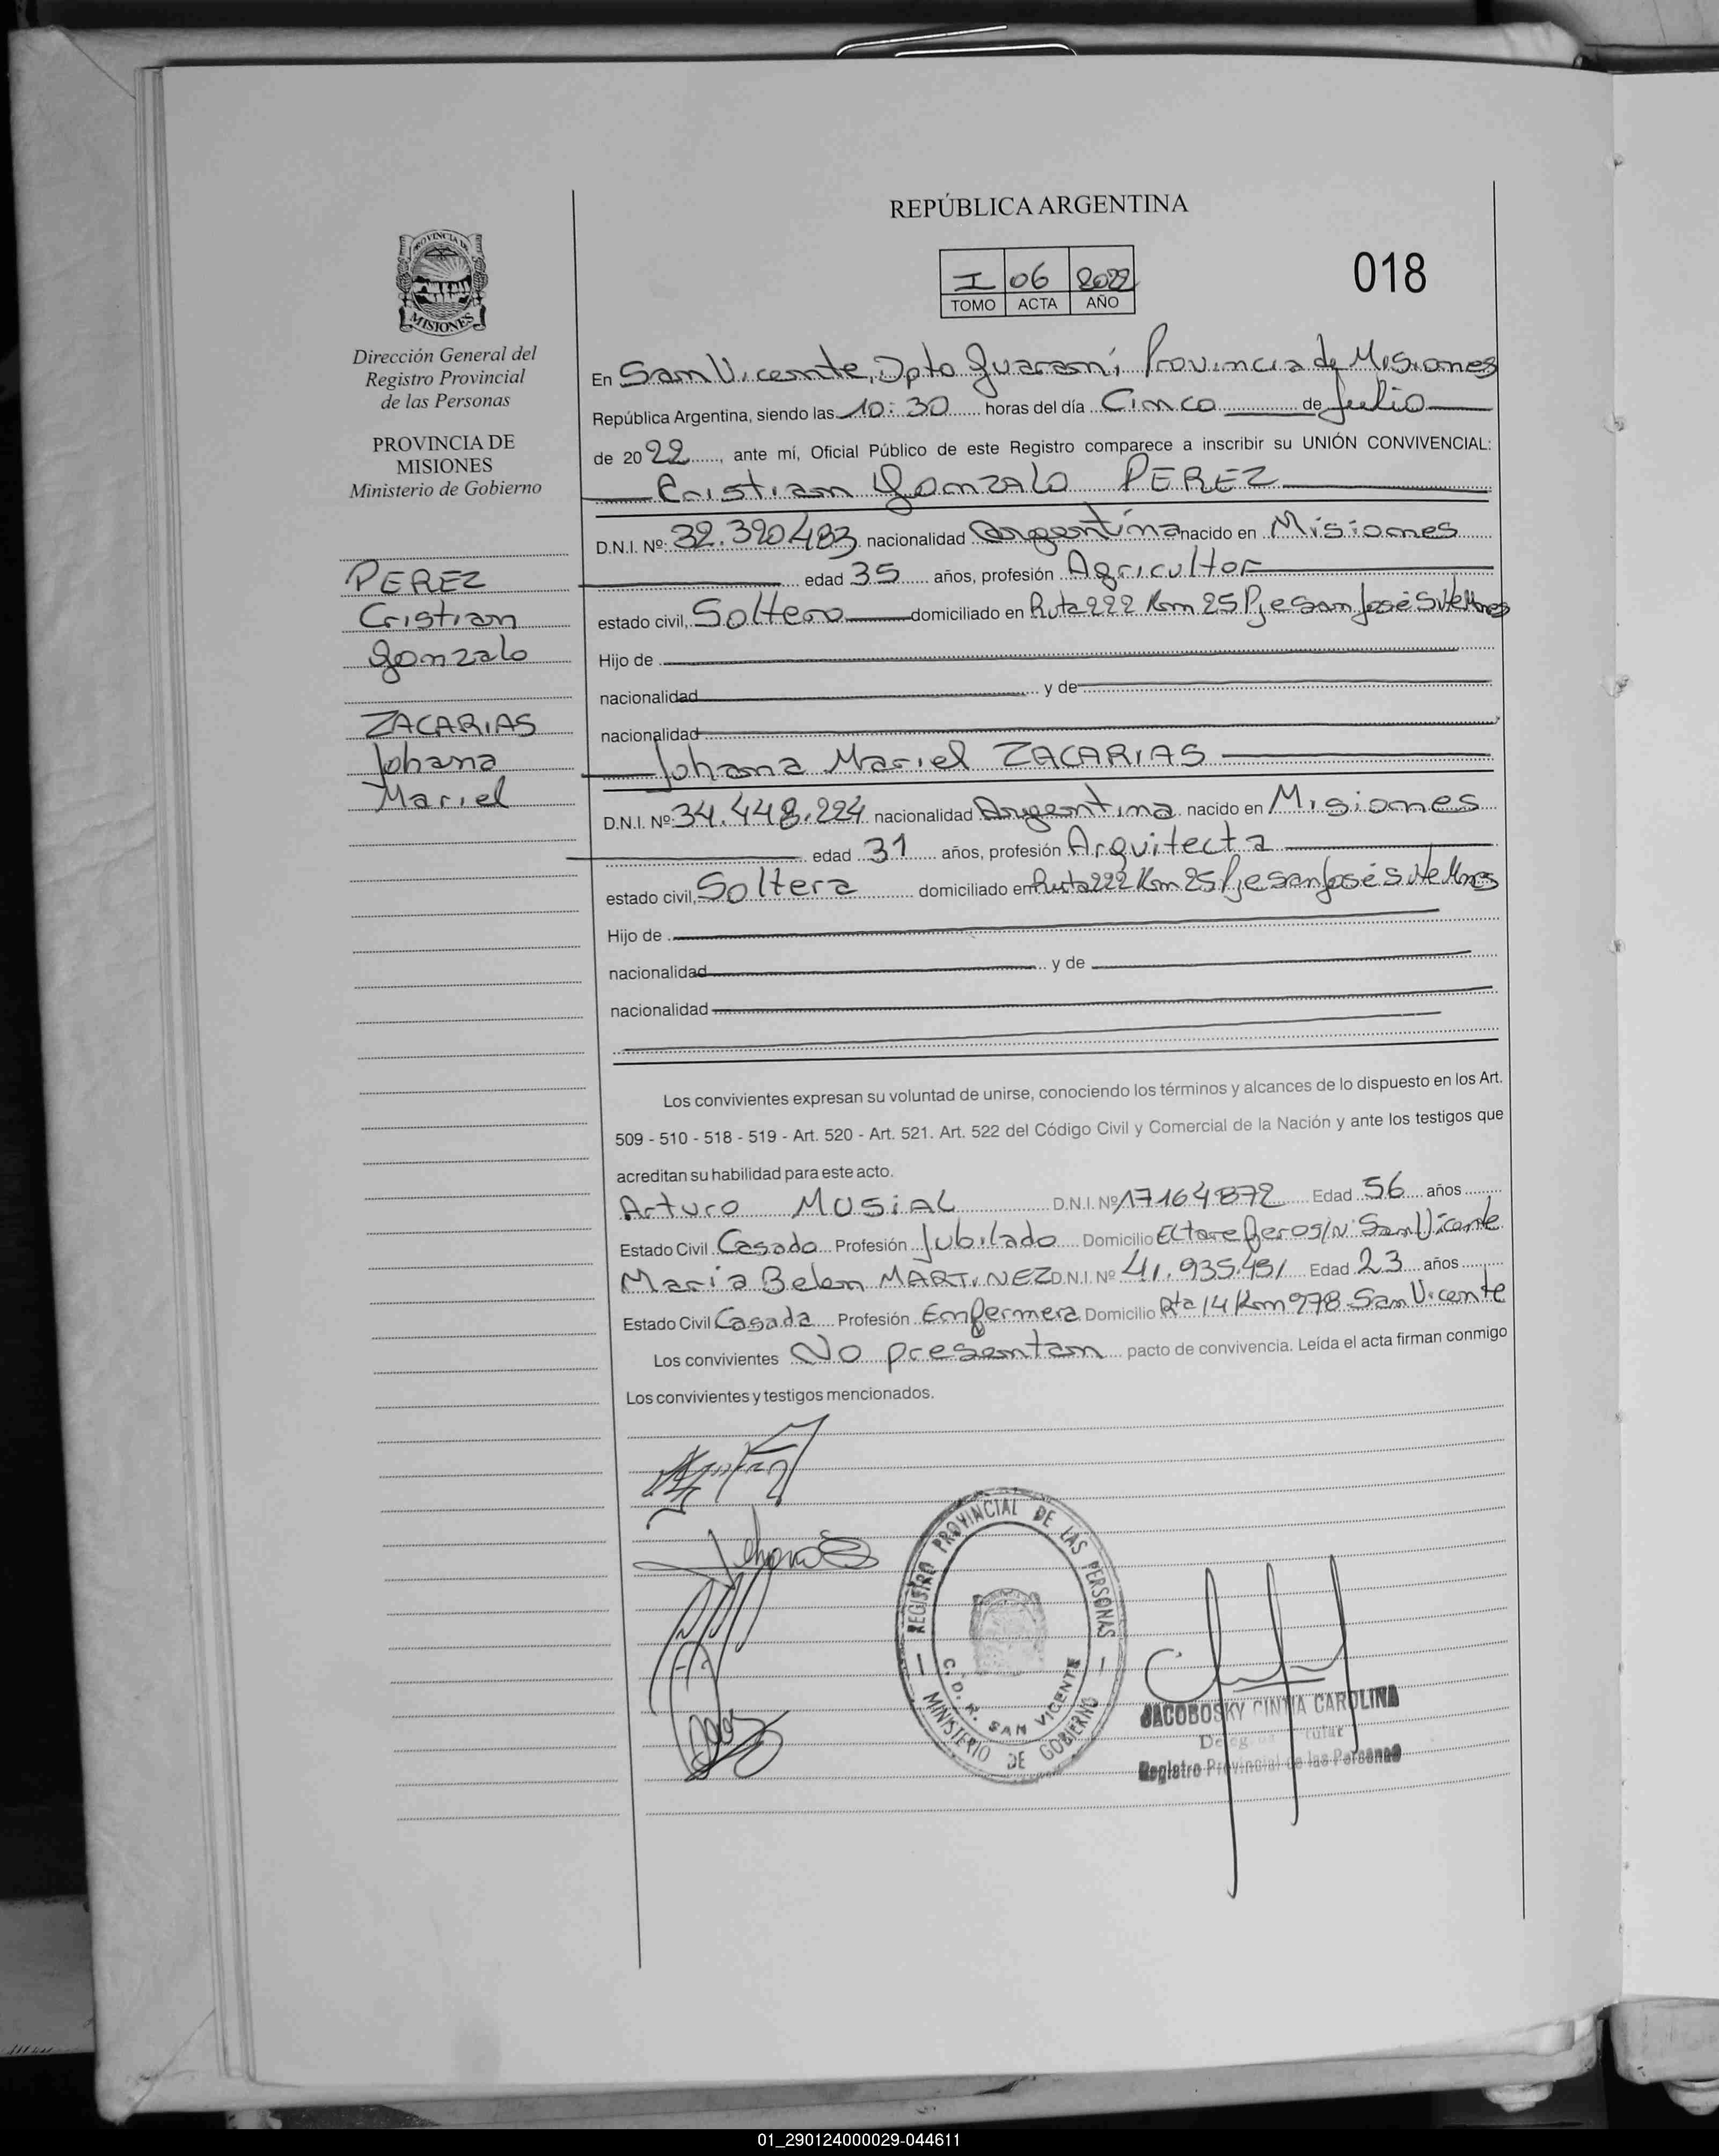 REPÚBLICA ARGENTINA
PROVINCIA DE
MISIONES
Dirección General del
Registro Provincial
de las Personas
PROVINCIA DE
MISIONES
Ministerio de Gobierno
I 06 2022
TOMO ACTA AÑO
018
PEREZ
Cristian
Gonzalo
ZACARIAS
Johana
Mariel
En San Vicente, Dpto Guaraní, Provincia de Misiones
República Argentina, siendo las 10:30 horas del día Cinco de Julio
de 2022, ante mí, Oficial Público de este Registro comparece a inscribir su UNIÓN CONVIVENCIAL:
Cristian Gonzalo PEREZ
D.N.I. Nº: 32.390483 nacionalidad Argentina nacido en Misiones
edad 35 años, profesión Agricultor
estado civil, Soltero domiciliado en Ruta 222 Km 25 Pje San José S. Vte Mnes
Hijo de
nacionalidad y de
nacionalidad
Johana Mariel ZACARIAS
D.N.I. Nº: 34.448.224 nacionalidad Argentina nacido en Misiones
edad 31 años, profesión Arquitecta
estado civil, Soltera domiciliado en Ruta 222 Km 25 Pje San José S. Vte Mnes
Hijo de
nacionalidad y de
nacionalidad
Los convivientes expresan su voluntad de unirse, conociendo los términos y alcances de lo dispuesto en los Art.
509 - 510 - 518 - 519 - Art. 520 - Art. 521. Art. 522 del Código Civil y Comercial de la Nación y ante los testigos que
acreditan su habilidad para este acto.
Arturo MUSiAL D.N.I. Nº 17164872 Edad 56 años
Estado Civil Casado Profesión Jubilado Domicilio s/n San Vicente
Maria Belen MARTINEZ D.N.I. Nº 41.935.451 Edad 23 años
Estado Civil Casada Profesión Enfermera Domicilio Rta 14 Km 978 San Vicente
Los convivientes No presentan pacto de convivencia. Leída el acta firman conmigo
Los convivientes y testigos mencionados.
REGISTRO PROVINCIAL DE LAS PERSONAS
C.D.R. SAN VICENTE
MINISTERIO DE GOBIERNO
JACOBOSKY CINTIA CAROLINA
Registro Provincial de las Personas
01_290124000029-044611